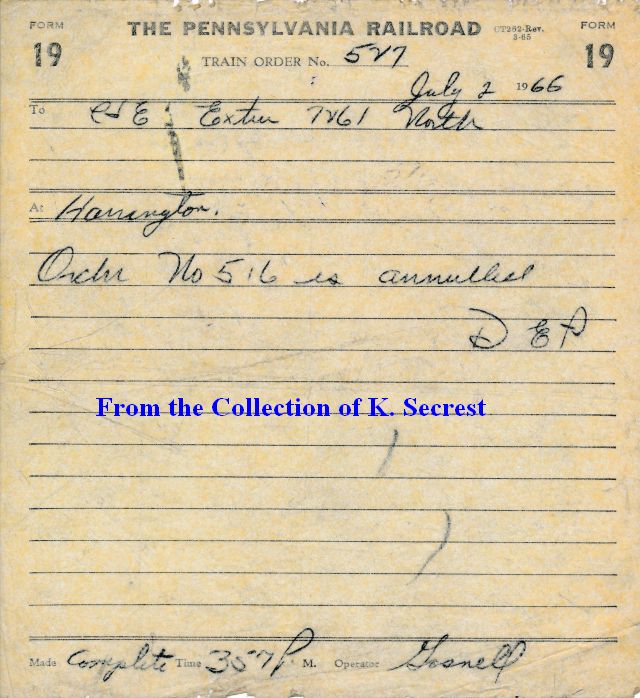 FORM THE PENNSYLVANIA RAILROAD CT262-Rev. 3-65 FORM
19 TRAIN ORDER No. 527 19
July 2 1966
To C&E Extra 7261 North
At Harrington.
Order No 516 is annulled
D E P
From the Collection of K. Secrest
Made Complete Time 357 P. M. Operator Gosnell